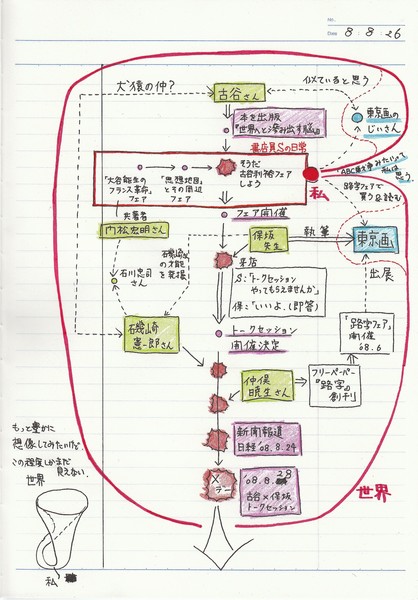 No.
Date 8・8・26
犬猿の仲?
古谷さん
似ていると思う
東京画の
じいさん
本を出版
『世界へと滲み出す脳』
書店員Sの日常
「大谷能生の
フランス革命」
フェア
「思想地図」
とその周辺
フェア
そうだ
古谷利裕フェア
しよう
私
『ABC本を歩みたい』って
私は
思う
路字フェアで
買う&読む
共著者
門松宏明さん
フェア開催
保坂
先生
執筆
東京画
石川忠司
さん
磯崎さん
の才能
を発掘
来店
S:「トークセッション
やってもらえませんか」
保:「いいよ、(即答)
出展
磯崎
憲一郎さん
トークセッション
開催決定
「路字フェア」
開催
'08.6
仲俣
暁生さん
フリーペーパー
『路字』の
創刊
新聞報道
日経'08.8.24
'08.8.28
古谷×保坂
トークセッション
世界
もっと豊かに
想像してみたいけど。
この程度しかまだ
見えない。
世界
私